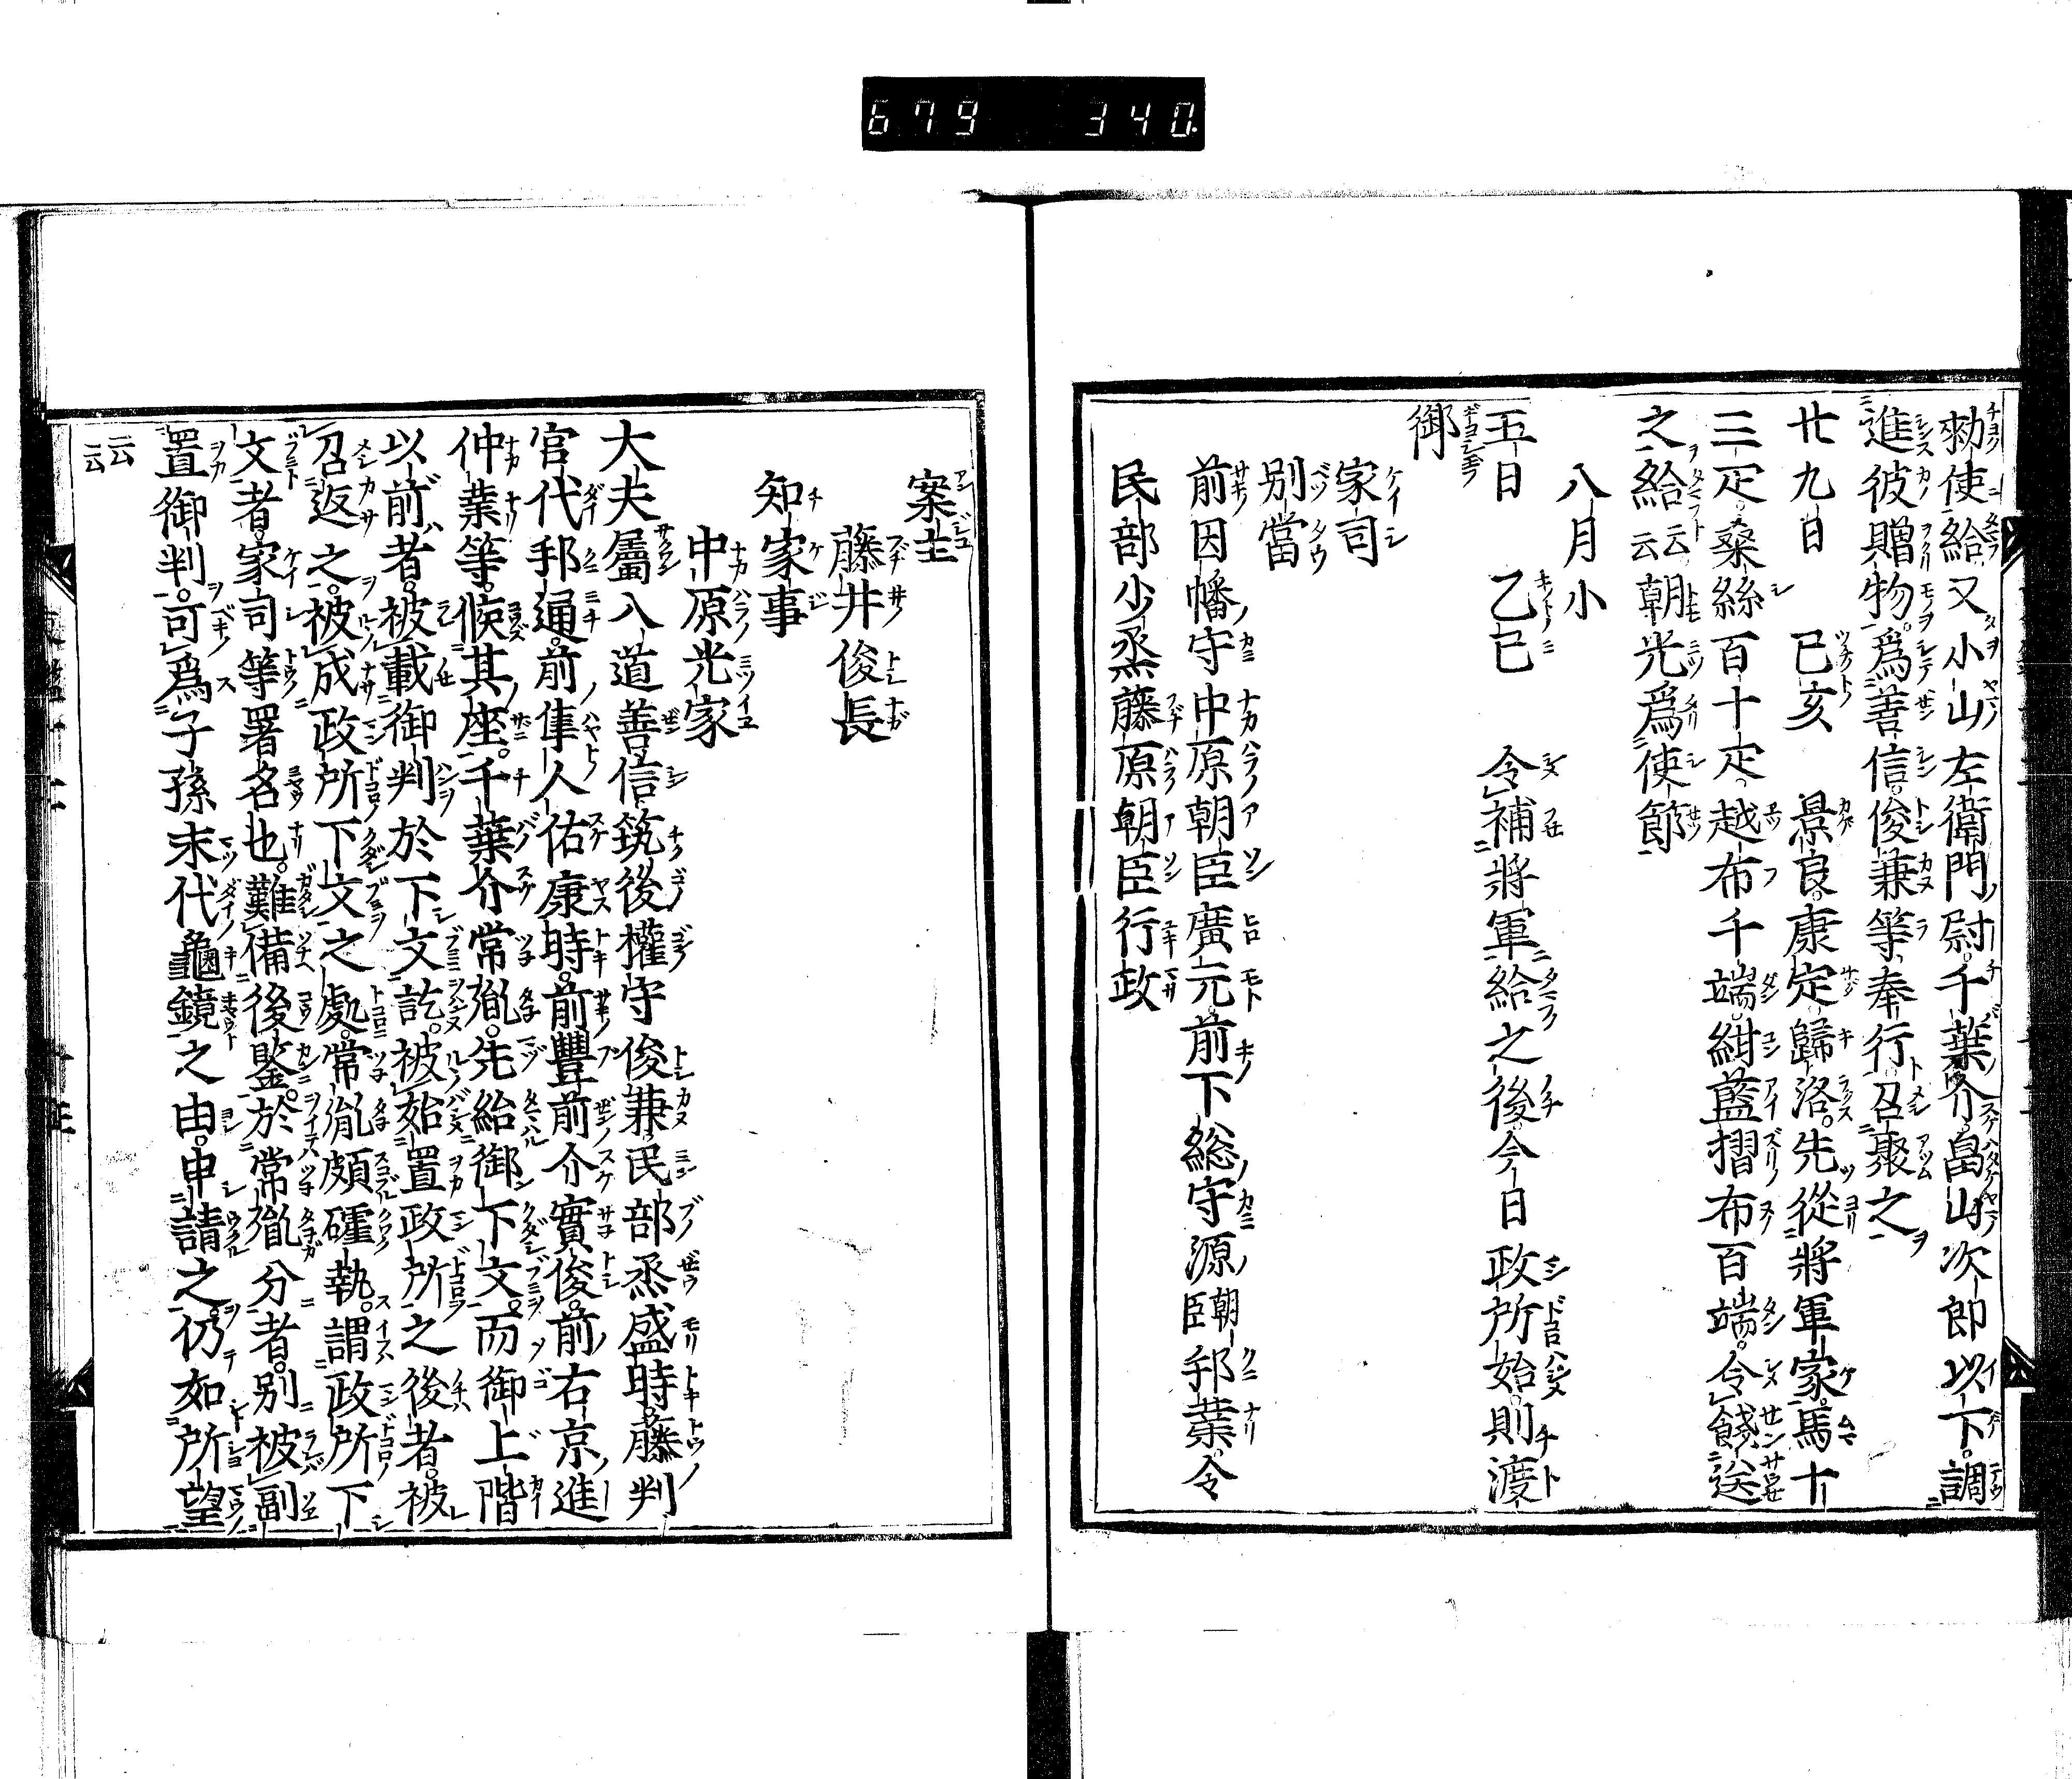 679 340.
勅使給又小山左衛門尉。千葉介。畠山次郎以下。調
進彼贈物。爲善信。俊兼等奉行召聚之
廿九日 己亥 景良。康定歸洛。先從將軍家。馬十
三疋。桑絲百十疋。越布千端。紺藍摺布百端。令餞送
之給云云朝光爲使節
八月小
五日 乙巳 令補將軍給之後。今日政所始。則渡
御
家司
別當
前因幡守中原朝臣廣元。前下総守源朝臣邦業。令
民部少丞藤原朝臣行政
案主
藤井俊長
知家事
中原光家
大夫屬入道善信筑後權守俊兼民部丞盛時。藤判
官代邦通。前隼人佑康時。前豐前介實俊。前右京進
仲業等。候其座。千葉介常胤。先給御下文。而御上階
以前者。被載御判於下文訖。被始置政所之後者。被
召返之。被成政所下文之處。常胤頗確執。謂政所下
文者。家司等署名也。難備後鑒。於常胤分者。別被副
置御判。可爲子孫末代龜鏡之由。申請之。仍如所望
云云